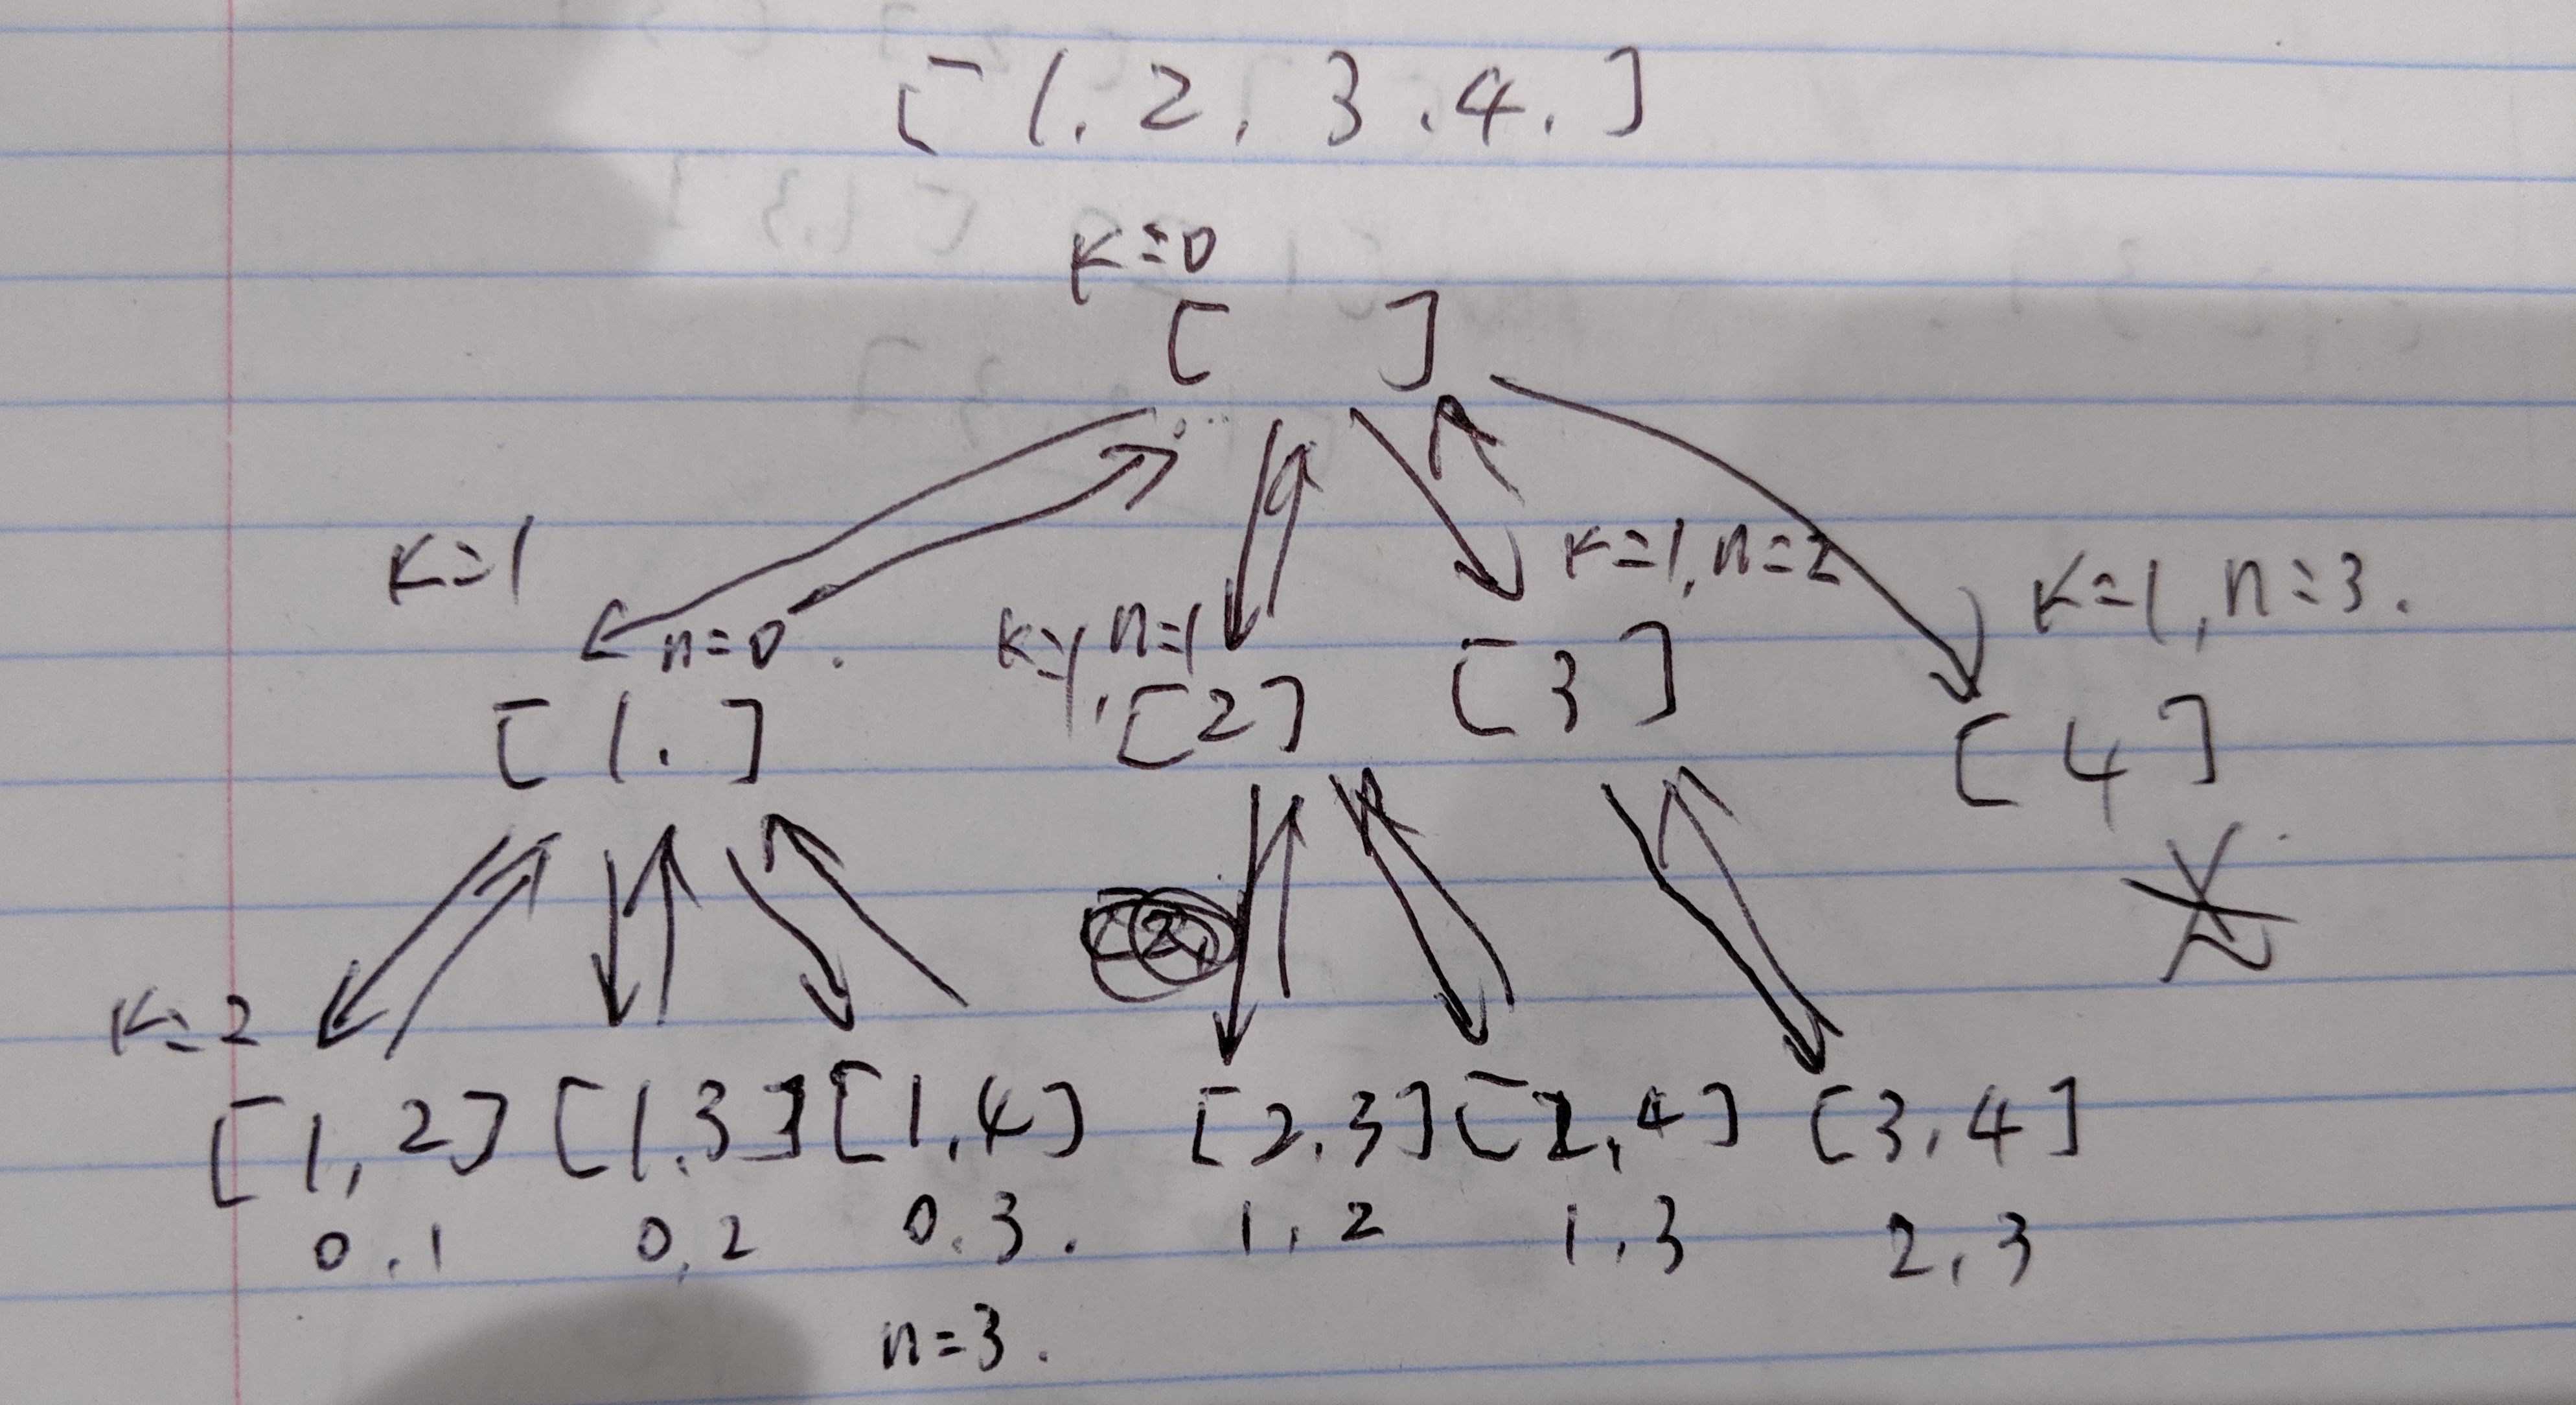 [1.2,3.4.]
k=0
[ ]
k=1
n=0.
k=1, n=1
k=1, n=2
k=1, n=3.
[1.]
[2]
[3]
[4]
k=2
[1,2] [1.3] [1,4] [2,3] [2,4] [3,4]
0.1 0,2 0.3. 1,2 1,3 2,3
n=3.